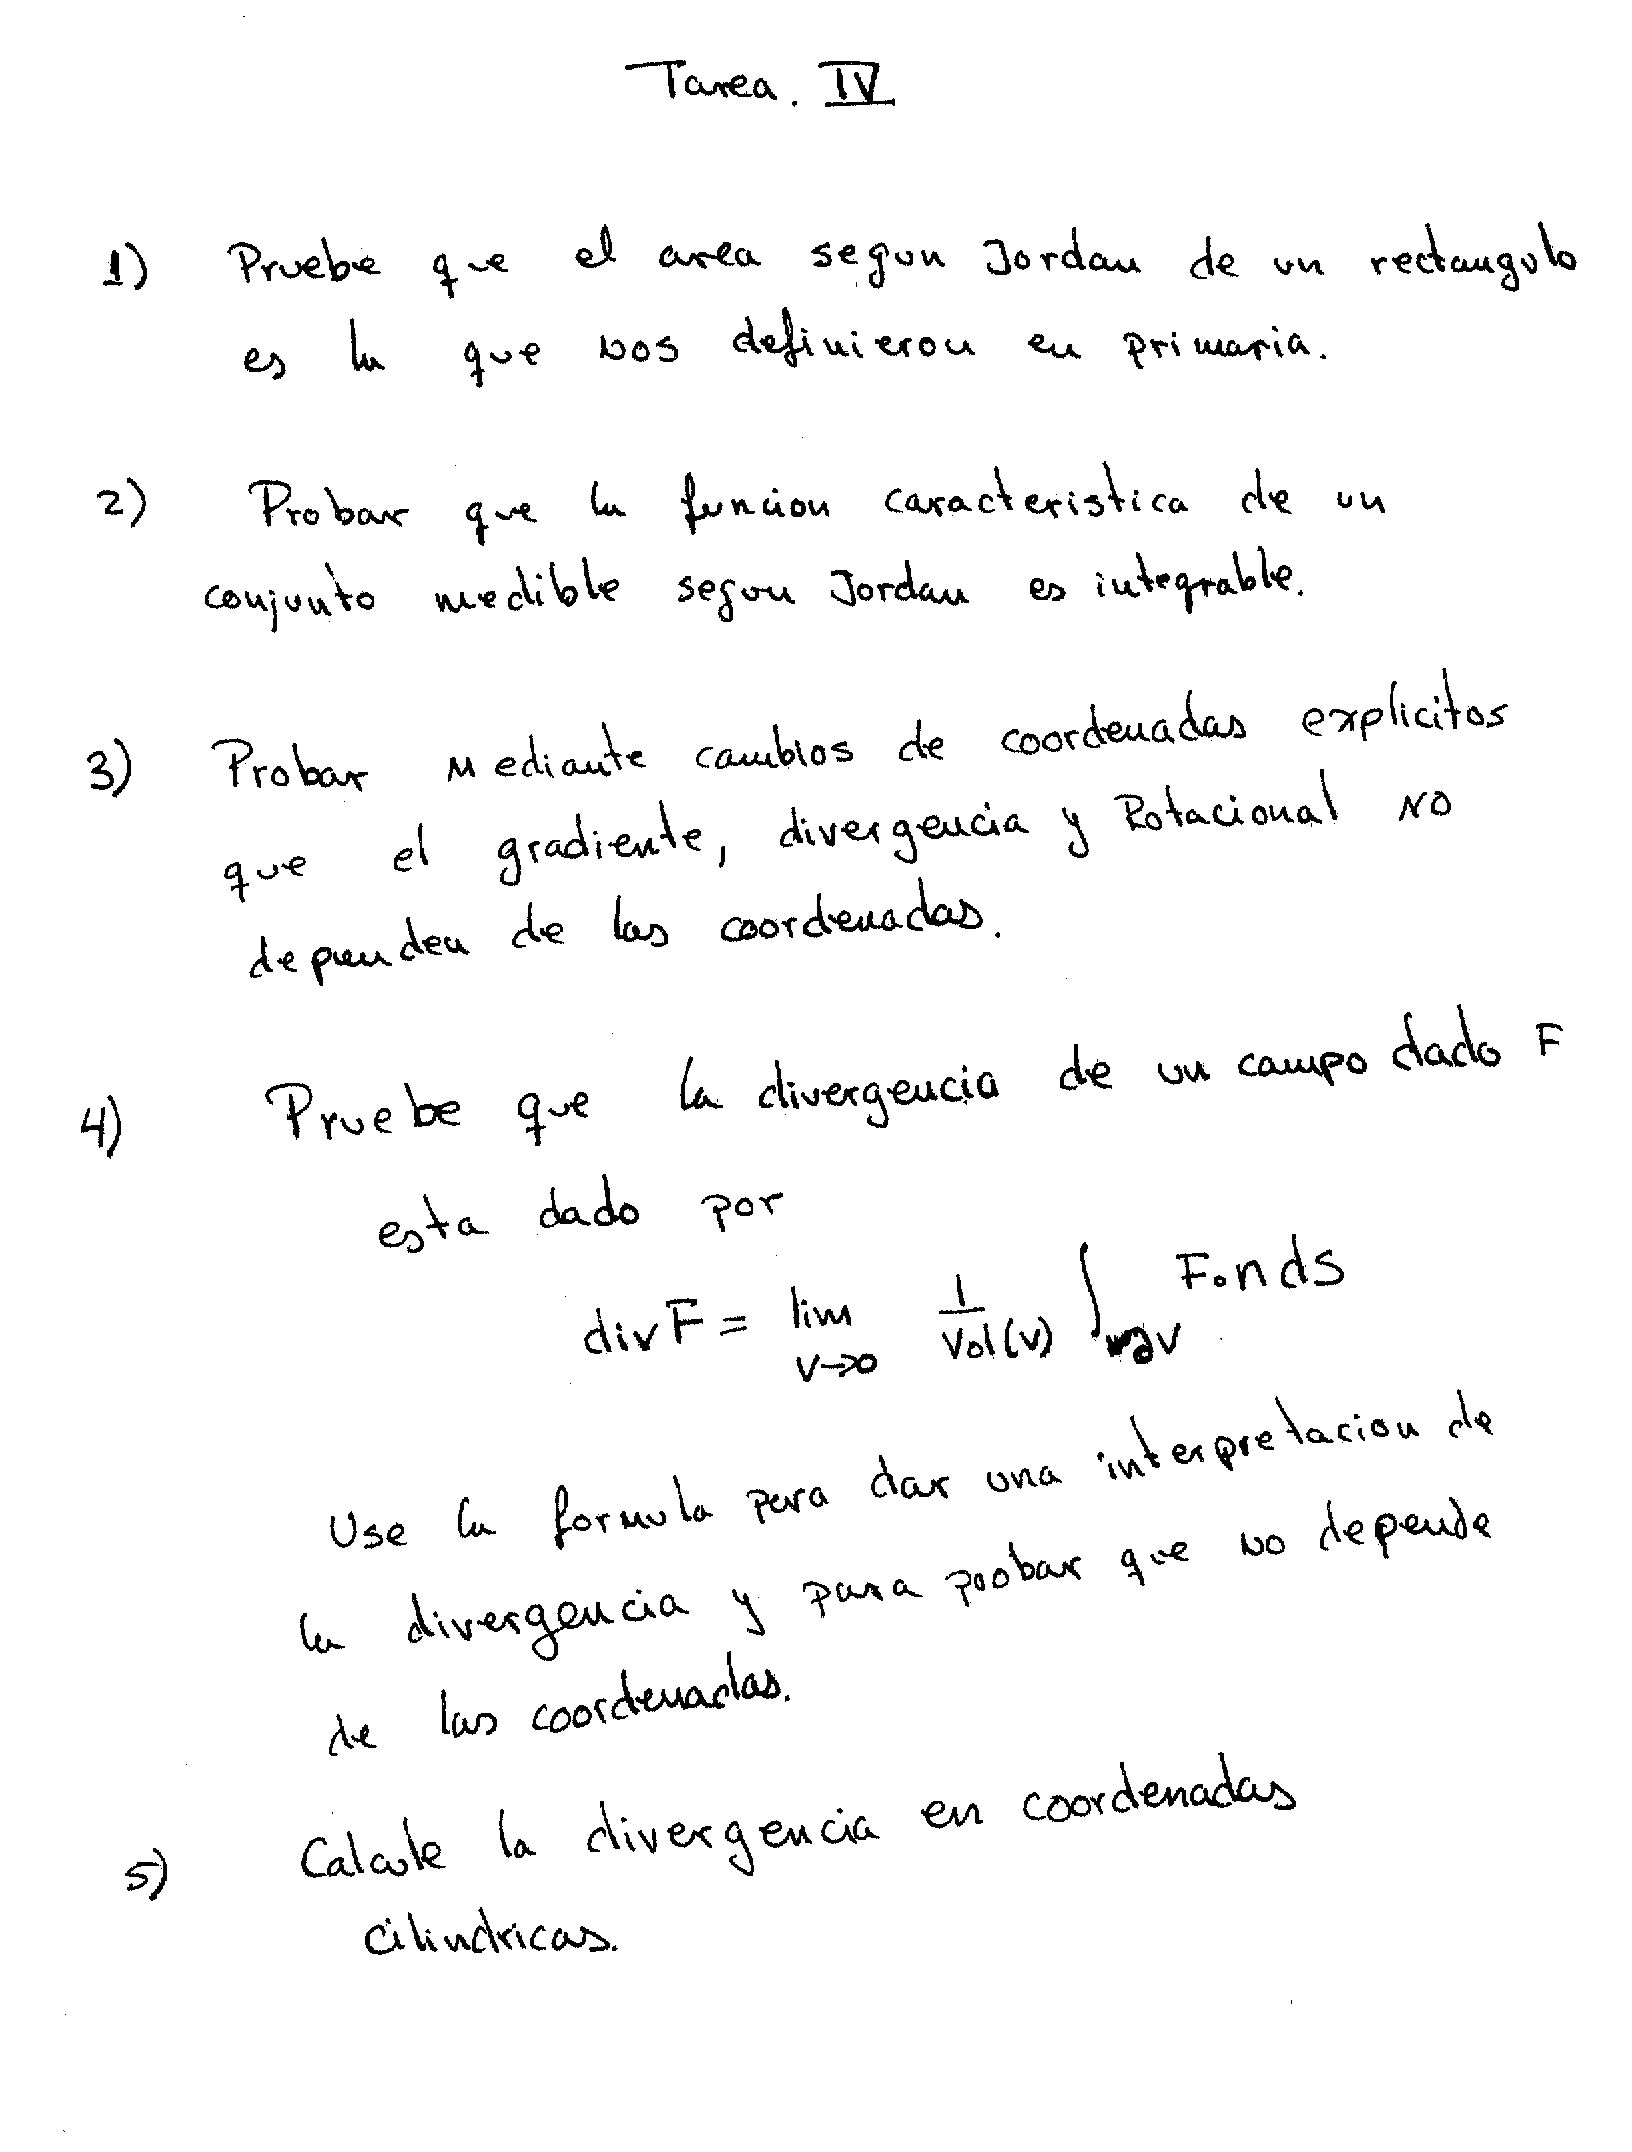 Tarea. IV
1) Pruebe que el area segun Jordan de un rectangulo
es la que nos definieron en primaria.
2) Probar que la funcion caracteristica de un
conjunto medible segun Jordan es integrable.
3) Probar Mediante cambios de coordenadas explicitos
que el gradiente, divergencia y Rotacional NO
dependen de las coordenadas.
4) Pruebe que la divergencia de un campo dado F
esta dado por
div F = lim V→0 1/Vol(V) ∫∂V F·n dS
Use la formula para dar una interpretacion de
la divergencia y para probar que no depende
de las coordenadas.
5) Calcule la divergencia en coordenadas
cilindricas.